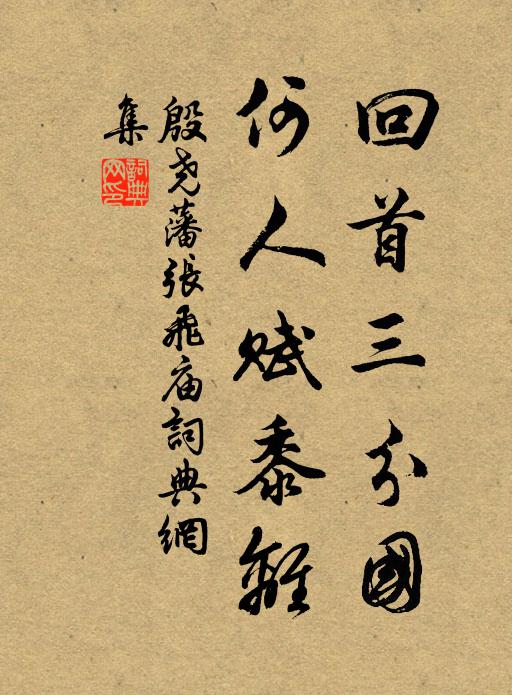 回首三分國
何人賦黍離
殷尧藩張飛庙詞典網
集
詞典
网印